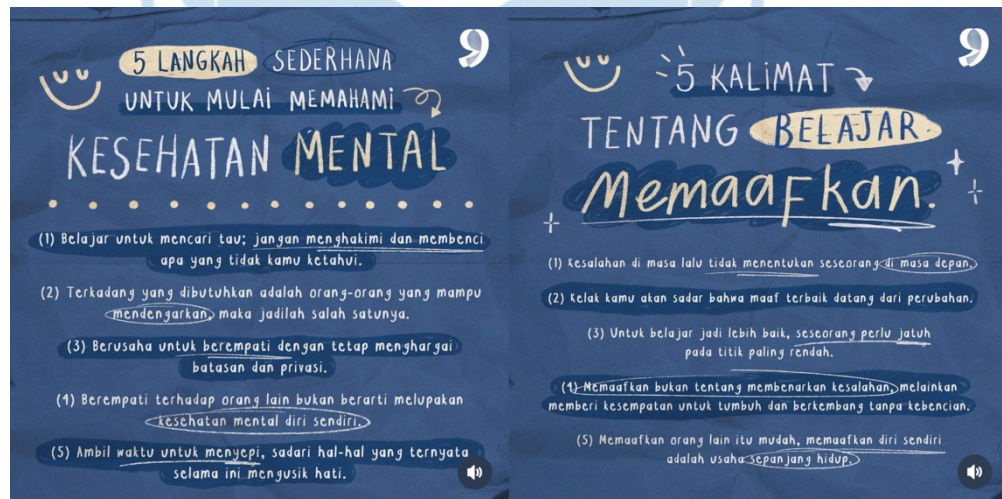 5 LANGKAH SEDERHANA
UNTUK MULAI MEMAHAMI
KESEHATAN MENTAL
(1) Belajar untuk mencari tau; jangan menghakimi dan membenci
apa yang tidak kamu ketahui.
(2) Terkadang yang dibutuhkan adalah orang-orang yang mampu
mendengarkan, maka jadilah salah satunya.
(3) Berusaha untuk berempati dengan tetap menghargai
batasan dan privasi.
(4) Berempati terhadap orang lain bukan berarti melupakan
kesehatan mental diri sendiri.
(5) Ambil waktu untuk menyepi, sadari hal-hal yang ternyata
selama ini mengusik hati.
5 KALIMAT
TENTANG BELAJAR
Memaafkan.
(1) Kesalahan di masa lalu tidak menentukan seseorang di masa depan.
(2) Kelak kamu akan sadar bahwa maaf terbaik datang dari perubahan.
(3) Untuk belajar jadi lebih baik, seseorang perlu jatuh
pada titik paling rendah.
(4) Memaafkan bukan tentang membenarkan kesalahan, melainkan
memberi kesempatan untuk tumbuh dan berkembang tanpa kebencian.
(5) Memaafkan orang lain itu mudah, memaafkan diri sendiri
adalah usaha sepanjang hidup.